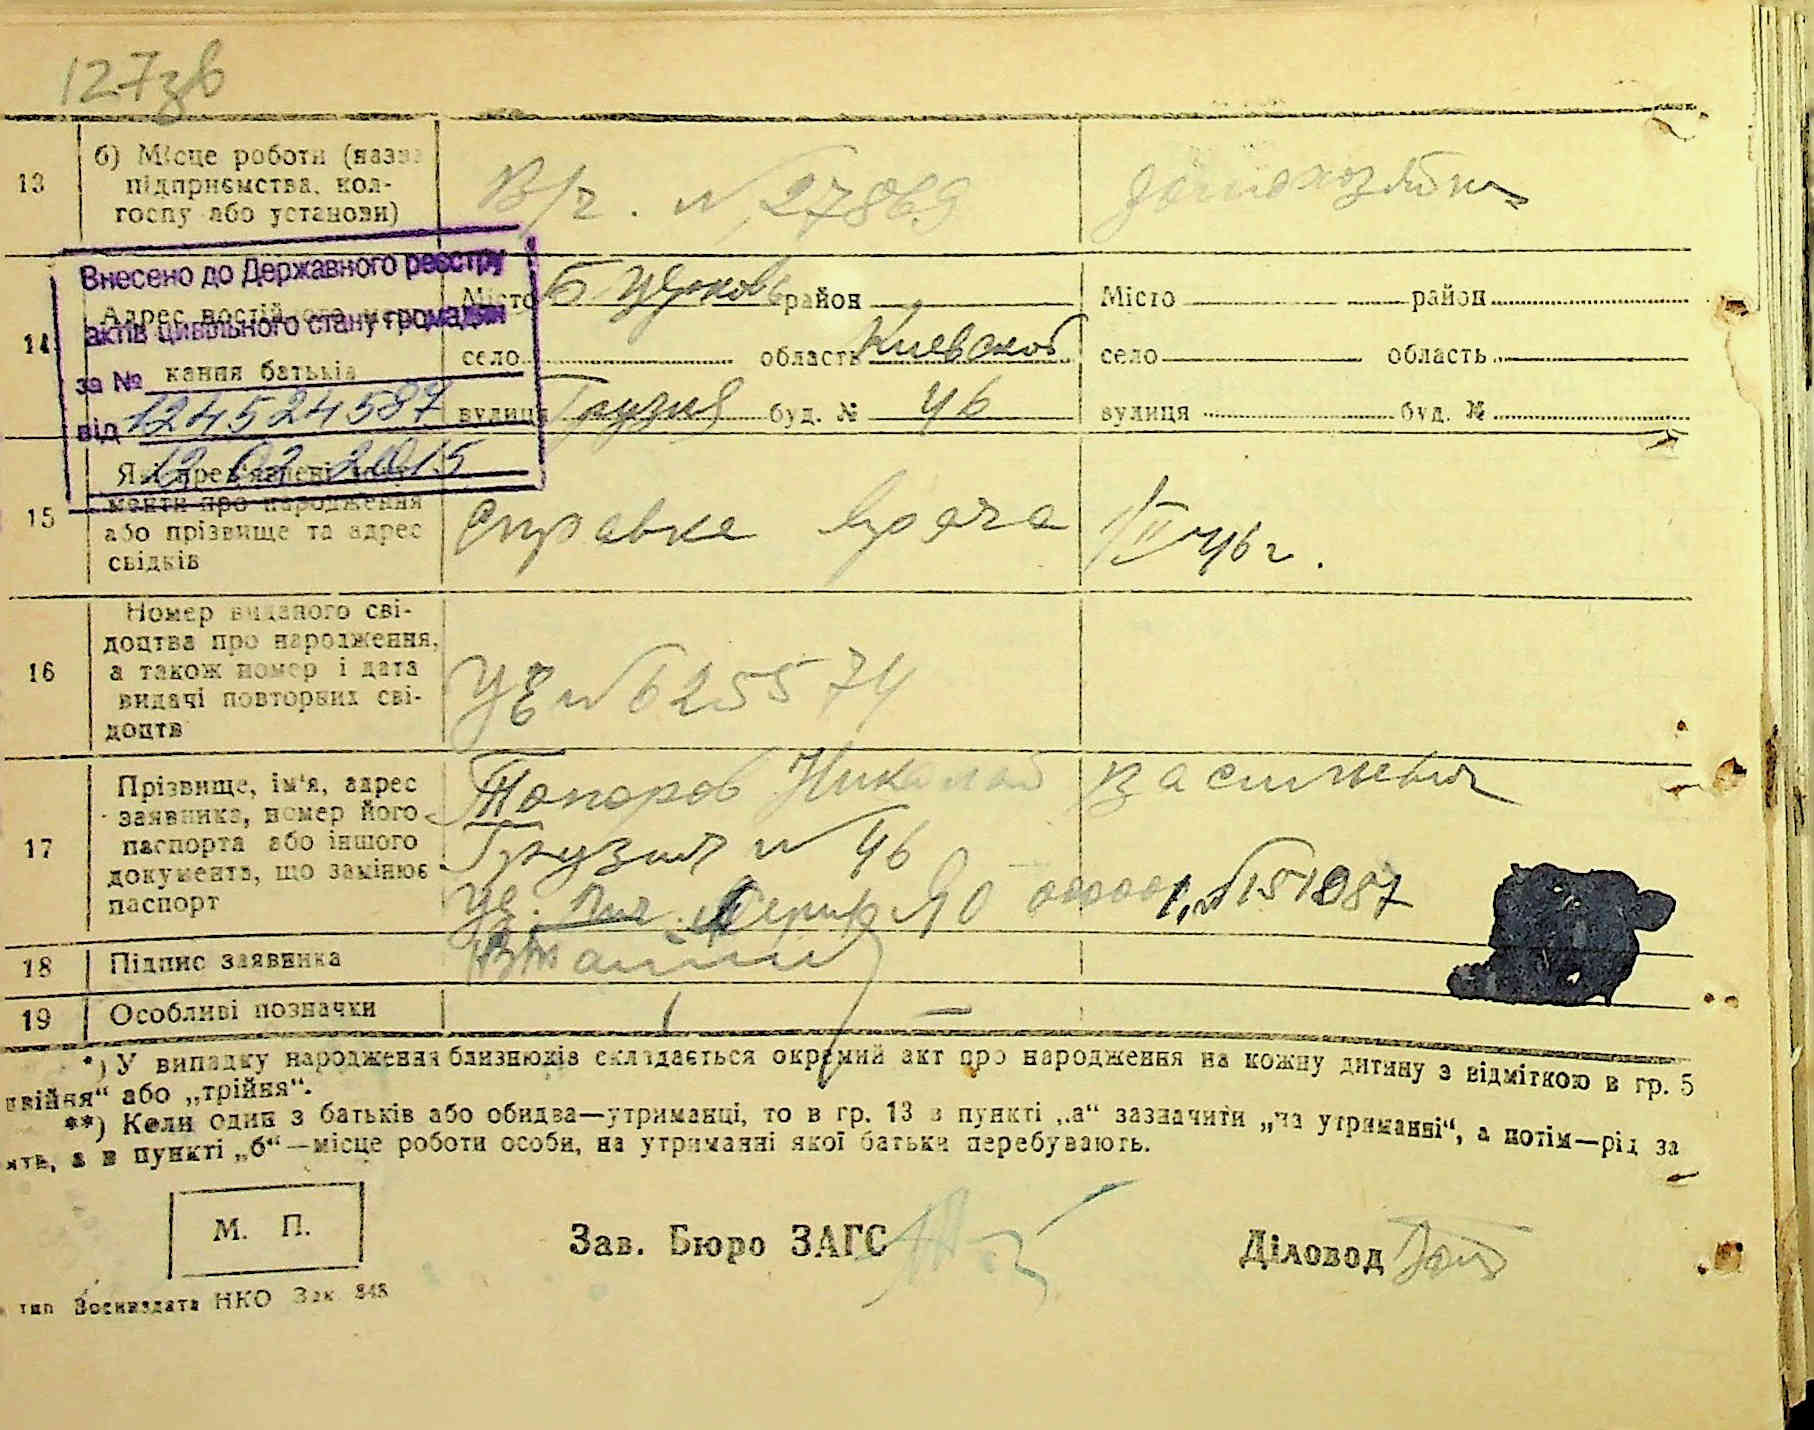 127зв
13
б) Місце роботи (назва
підприємства, кол-
госпу або установи)
В/ч. № 27869
домохозяйка
Внесено до Державного реєстру
актів цивільного стану громадян
за №
124524587
від
12 02 2015
14
кання батьків
Місто Б Церковь район
село область Киевской
вулиця Грузия буд. № 46
Місто район
село область
вулиця буд. №
15
менти про народження
або прізвище та адрес
свідків
Справка врача
1/II 46 г.
16
Номер виданого сві-
доцтва про народження,
а також номер і дата
видачі повторних сві-
доцтв
№ 625574
17
Прізвище, ім'я, адрес
заявника, номер його
паспорта або іншого
документа, що замінює
паспорт
Топоров Николай Василиевич
Грузия № 46
Уд. Лич. № 151087
18
Підпис заявника
19
Особливі позначки
*) У випадку народження близнюків складається окремий акт про народження на кожну дитину з відміткою в гр. 5
двійня“ або „трійня“.
**) Коли один з батьків або обидва—утриманці, то в гр. 13 в пункті „а“ зазначити „на утриманні“, а потім—рід за
ять, а в пункті „б“—місце роботи особи, на утриманні якої батьки перебувають.
М. П.
Зав. Бюро ЗАГС
Діловод
тип Воениздата НКО Зак 848